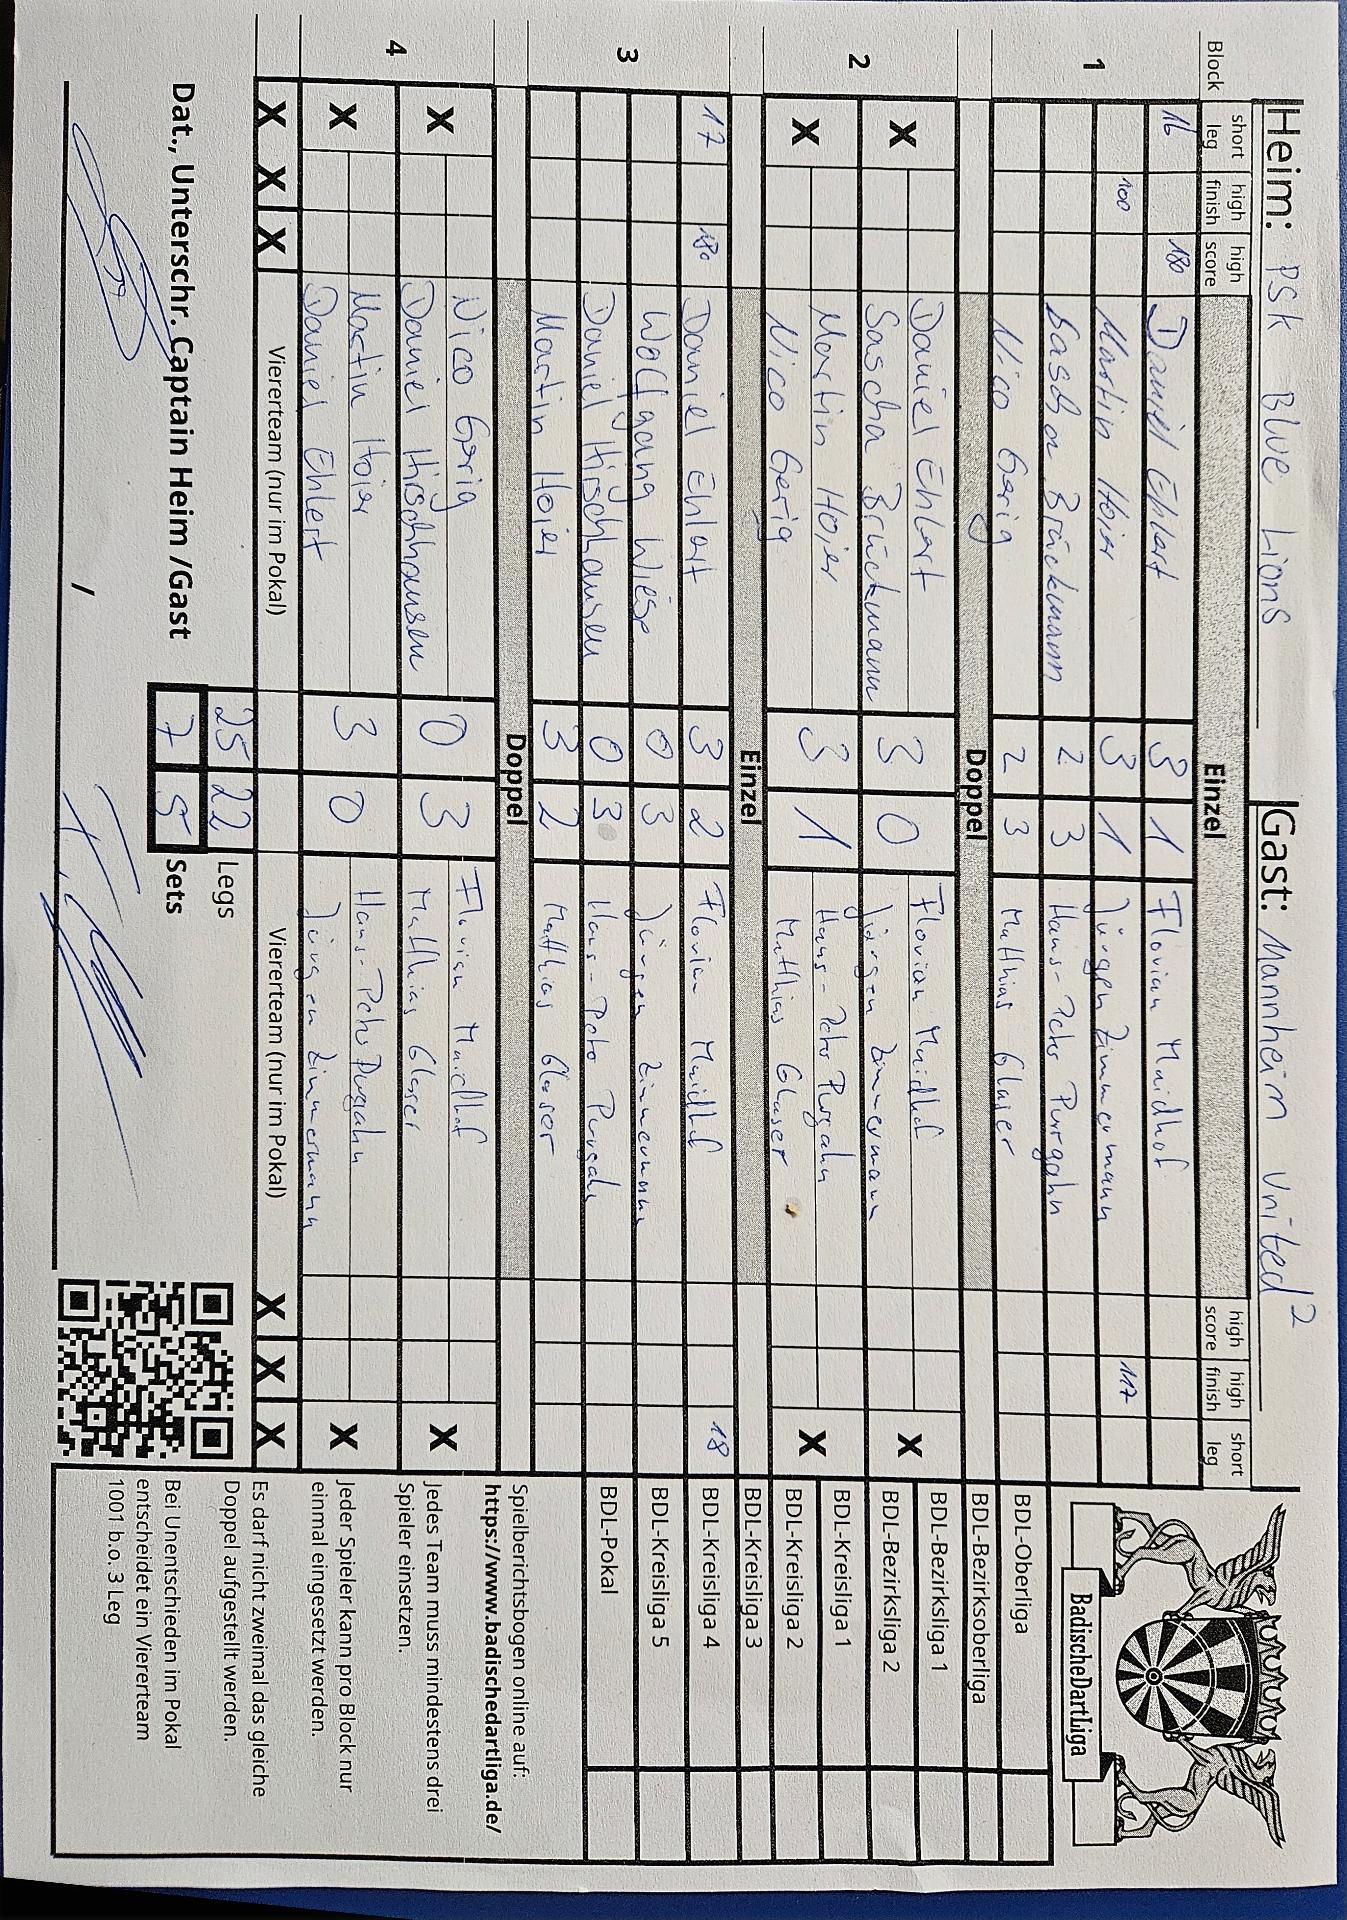 Heim: PSK Blue Lions Gast: Mannheim United 2
Block short leg high finish high score Einzel high score high finish short leg
1
16 180 Daniel Ehlert 3 1 Florian Maidhof
100 Martin Hoier 3 1 Jürgen Zimmermann 117
Sascha Brückmann 2 3 Hans-Peter Purgahn
Nico Gerig 2 3 Matthias Glaser
Doppel
2
X Daniel Ehlert 3 0 Florian Maidhof X
Sascha Brückmann Jürgen Zimmermann
X Martin Hoier 3 1 Hans-Peter Purgahn X
Nico Gerig Matthias Glaser
Einzel
3
17 180 Daniel Ehlert 3 2 Florian Maidhof 18
Wolfgang Wiese 0 3 Jürgen Zimmermann
Daniel Hirschhausen 0 3 Hans-Peter Purgahn
Martin Hoier 3 2 Matthias Glaser
Doppel
4
X Nico Gerig 0 3 Florian Maidhof X
Daniel Hirschhausen Matthias Glaser
X Martin Hoier 3 0 Hans-Peter Purgahn X
Daniel Ehlert Jürgen Zimmermann
X X X Vierer­team (nur im Pokal) Viererteam (nur im Pokal) X X X
25 22 Legs
Dat., Unterschr. Captain Heim /Gast 7 5 Sets
/
BadischeDartLiga
BDL-Oberliga
BDL-Bezirksoberliga
BDL-Bezirksliga 1
BDL-Bezirksliga 2
BDL-Kreisliga 1
BDL-Kreisliga 2
BDL-Kreisliga 3
BDL-Kreisliga 4
BDL-Kreisliga 5
BDL-Pokal
Spielberichtsbogen online auf:
https://www.badischedartliga.de/
Jedes Team muss mindestens drei
Spieler einsetzen.
Jeder Spieler kann pro Block nur
einmal eingesetzt werden.
Es darf nicht zweimal das gleiche
Doppel aufgestellt werden.
Bei Unentschieden im Pokal
entscheidet ein Viererteam
1001 b.o. 3 Leg